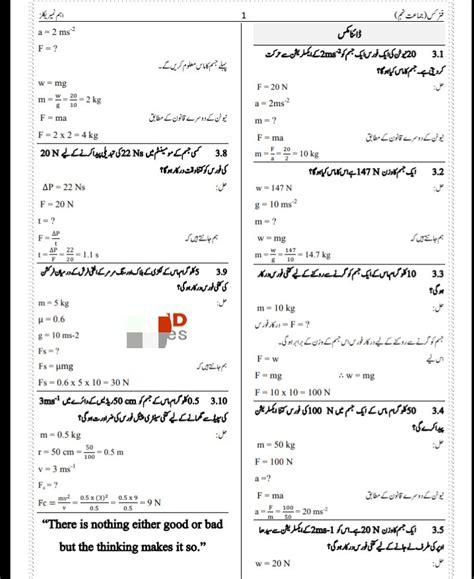 فزکس (جماعت نہم)
1
اہم نمیریکلز
ڈائنامکس
3.1 20 نیوٹن کی ایک فورس ایک جسم کو 2ms⁻² کے ایکسلریشن سے حرکت
کرتی ہے۔ جسم کا ماس کیا ہوگا؟
حل:
F = 20 N
a = 2ms⁻²
m = ?
نیوٹن کے دوسرے قانون کے مطابق
F = ma
m = F/a = 20/2 = 10 kg
3.2 ایک جسم کا وزن 147 N ہے اس کا ماس کیا ہوگا؟
حل:
w = 147 N
g = 10 ms⁻²
m = ?
ہم جانتے ہیں کہ
w = mg
m = w/g = 147/10 = 14.7 kg
3.3 10 کلوگرام ماس کے ایک جسم کو گرنے سے روکنے کے لیے کتنی فورس درکار
ہوگی؟
حل:
m = 10 kg
درکار فورس = F = ?
جسم کو گرنے سے روکنے کے لیے درکار فورس اس جسم کے وزن کے برابر ہوگی۔
اس لیے
F = w
F = mg ∴ w = mg
F = 10 x 10 = 100 N
3.4 50 کلوگرام ماس کے ایک جسم میں 100 N کی فورس کتنا ایکسلریشن
پیدا کرے گی؟
حل:
m = 50 kg
F = 100 N
a =?
نیوٹن کے دوسرے قانون کے مطابق
F = ma
a = F/m = 100/50 = 20 ms⁻²
3.5 ایک جسم کا وزن 20 N ہے۔ اس کو 2ms-1 کے ایکسلریشن سے سیدھا
اوپر کی طرف لے جانے کے لیے کتنی فورس درکار ہوگی؟
حل:
w = 20 N
a = 2 ms⁻²
F = ?
پہلے جسم کا ماس معلوم کریں گے۔
w = mg
m = w/g = 20/10 = 2 kg
نیوٹن کے دوسرے قانون کے مطابق
F = ma
F = 2 x 2 = 4 kg
3.8 کسی جسم کے مومینٹم میں 22 Ns کی تبدیلی پیدا کرنے کے لیے 20 N
کی فورس کو کتنا وقت درکار ہوگا؟
حل:
ΔP = 22 Ns
F = 20 N
t = ?
ہم جانتے ہیں کہ
F = ΔP/t
t = ΔP/F = 22/20 = 1.1 s
3.9 5 کلوگرام ماس کے لکڑی کے بلاک اور سنگ مرمر کے افقی فرش کے درمیان فرکشن
کی کتنی فورس درکار ہوگی؟
حل:
m = 5 kg
μ = 0.6
g = 10 ms-2
Fs = ?
ہم جانتے ہیں کہ
Fs = μmg
Fs = 0.6 x 5 x 10 = 30 N
3.10 0.5 کلوگرام ماس کے جسم کو 50 cm ریڈیس کے دائرے میں 3ms⁻¹
کی سپیڈ سے گھمانے کے لیے کتنی سینٹری پیٹل فورس کی ضرورت ہوگی؟
حل:
m = 0.5 kg
r = 50 cm = 50/100 = 0.5 m
v = 3 ms⁻¹
Fc = ?
Fc = mv²/r = 0.5 x (3)²/0.5 = 0.5 x 9/0.5 = 9 N
“There is nothing either good or bad
but the thinking makes it so.”